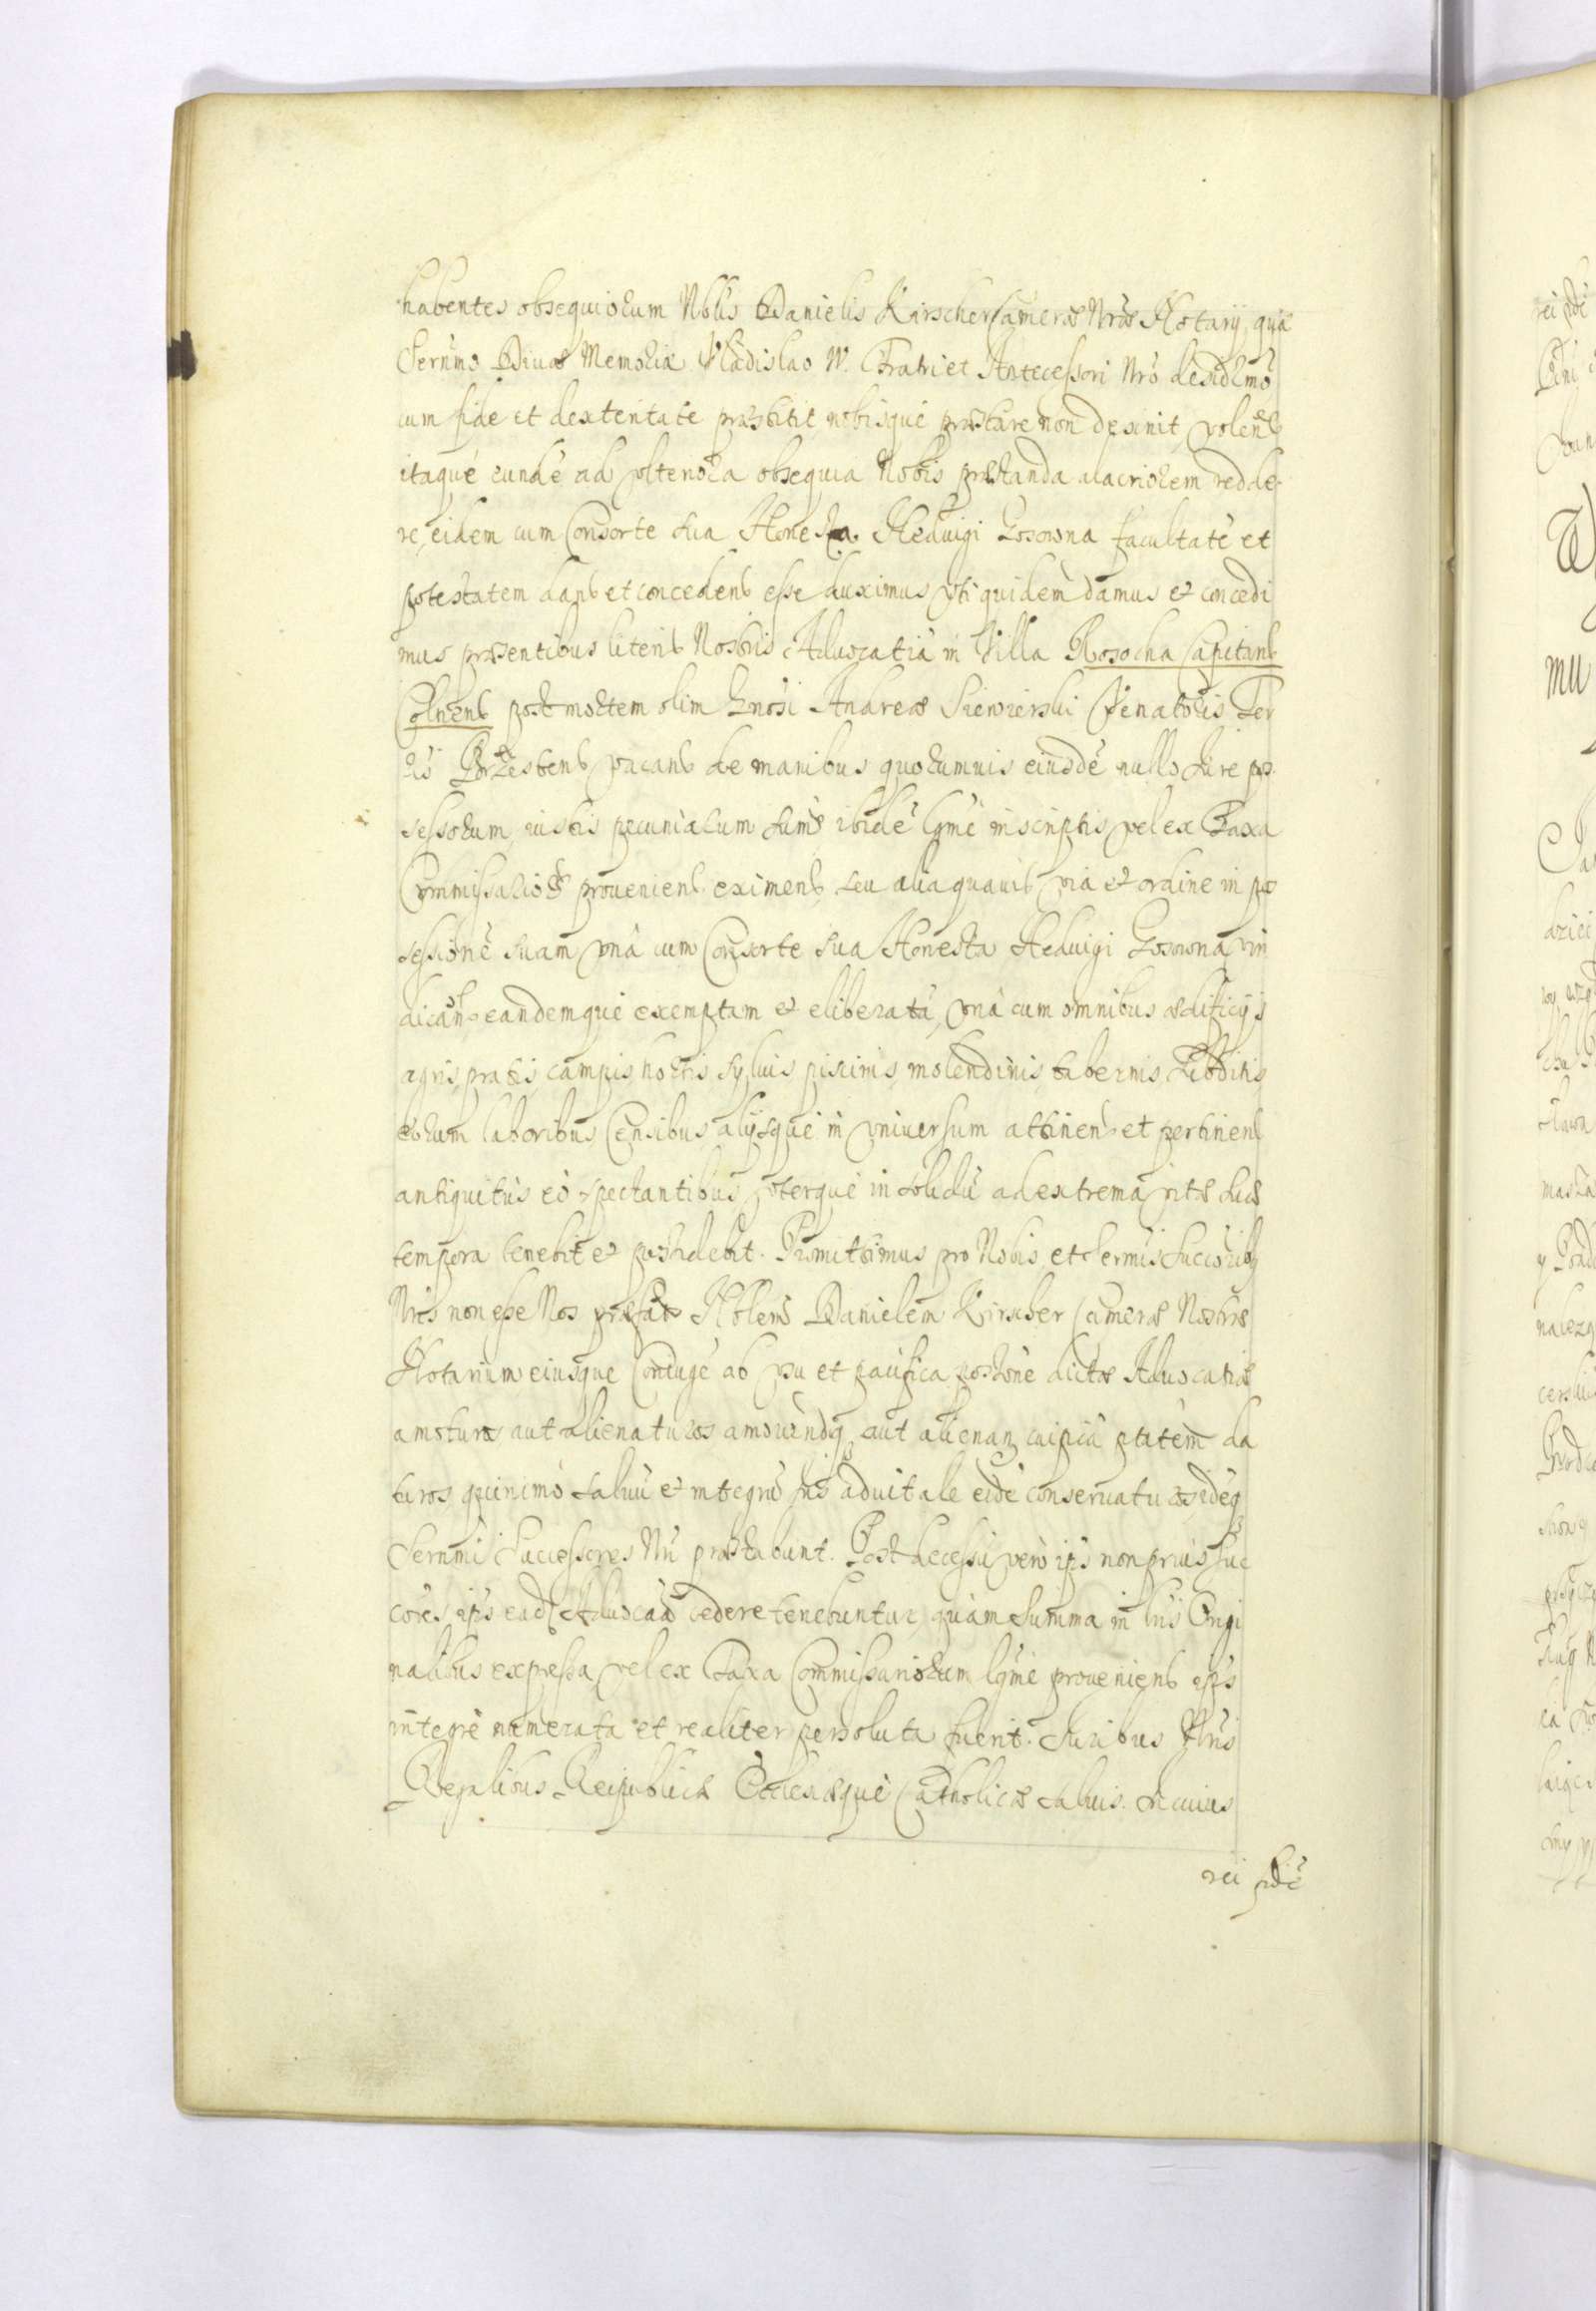 habentes obsequiorum Nblis Danielis Kirscher Cameræ Nræ Notarij, quæ
Sermo Divæ Memoriæ Vladislao IV. Fratri et Antecessori Nro desidmo
cum fide et dexteritate præstitit nobisque præstare non desinit, volent
itaque eundē ad ulteriora obsequia Nobis præstanda alacriorem redde-
re, eidem cum Consorte sua Honesta Hedvigi Lososna facultatē et
potestatem dand et concedend esse duximus, uti quidem damus et concedi
mus præsentibus literis Nostris Advocatiā in Villa Rosocha Capitand
Colnend post mortem olim Gnosi Andreæ Siewierski Venatoris Ter
ris Brzestend vacand de manibus quorumvis eiusdē nullo Jure pos
sessorum, iustis pecuniarum sumis ibidē lgmē inscriptis, vel ex Taxa
Commissario provenient eximend, seu alia quavis via et ordine in pos
sessionē suam unā cum Consorte sua Honesta Hedvigi Lososna vin
dicand eandemque exemptam et eliberatā, unā cum omnibus ædificijs
agris, pratis, campis, hortis, sylvis, piscinis, molendinis, tabernis, Subditis
eorum laboribus, Censibus, alijsque in universum attinen et pertinent
antiquitùs eò spectantibus, uterque in solidū ad extrema vitæ suæ
tempora tenebit et possidebit. Promittimus pro Nobis et Sermis Succoribg
Nris non esse Nos præfat Nblem Danielem Kirscher Cameræ Nostræ
Notarium eiusque Coniugē ab usu et pacifica possone dictæ Advocatiæ
amoturos aut alienaturos amovendq aut alienan cuipiā ptatem da
turos, quinimò salvū et integrū Jus advitale eidē conservaturos, idēq
Sermi Successores Nri præstabunt. Post decessū verò ips non prius Suc
cores ips ead Advocad cedere tenebuntur, quàm Summa in lris Origi
nalibus expressa, vel ex Taxa Commissariorum lgmē provenient ipis
integrè numerata et realiter persoluta fuerit. Juribus Nris
Regalibus Reipublicæ Ecclesiæque Catholicæ salvis. In cuius
rei fidē